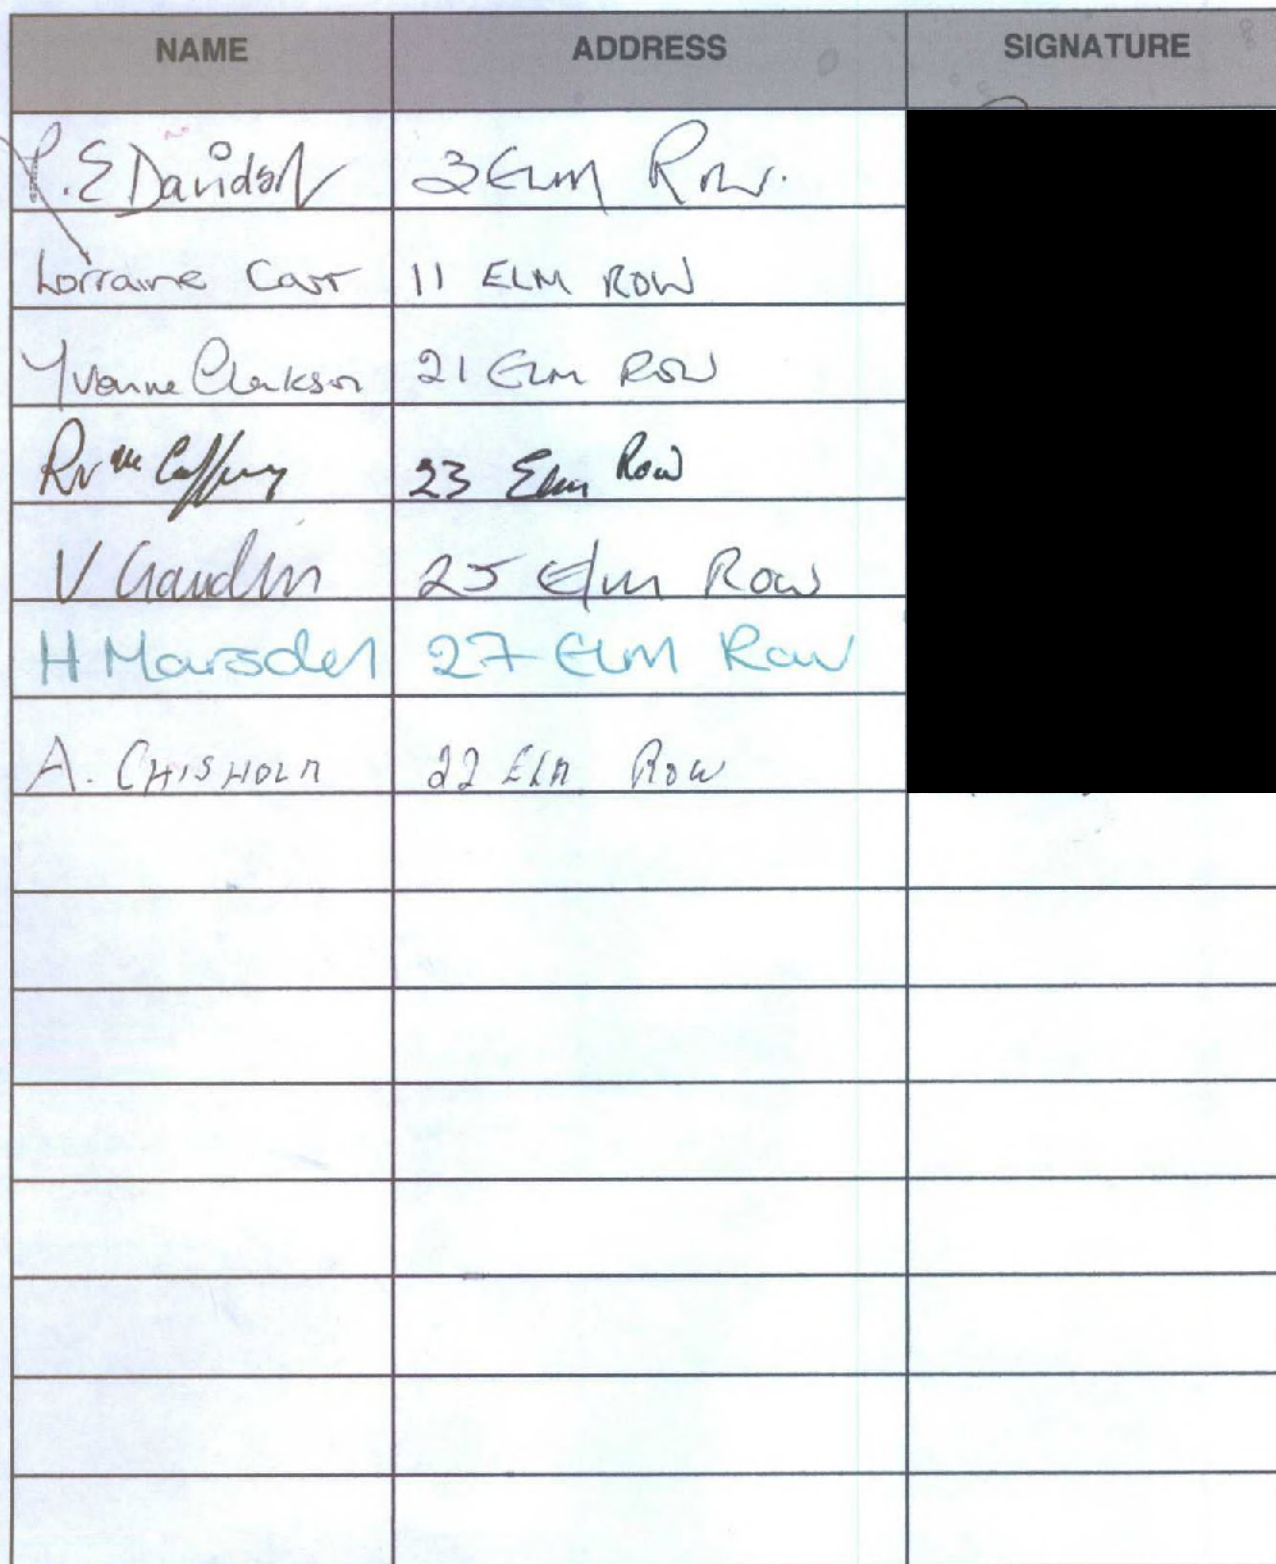 NAME ADDRESS SIGNATURE
R. E Davidson 3 Elm Row.
Lorraine Carr 11 ELM ROW
Yvonne Clarkson 21 Elm Row
Rv Mc Caffery 23 Elm Row
V Gaudin 25 Elm Row
H Marsden 27 Elm Row
A. CHISHOLM 22 ELM Row